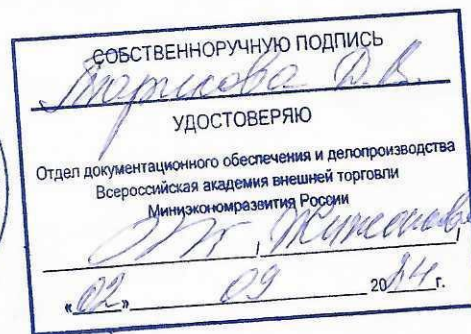 СОБСТВЕННОРУЧНУЮ ПОДПИСЬ
Д.В.
УДОСТОВЕРЯЮ
Отдел документационного обеспечения и делопроизводства
Всероссийская академия внешней торговли
Минэкономразвития России
«02» 09 2024 г.